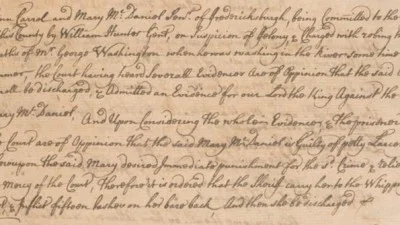 nn Carrol and Mary McDaniel Senr. of Fredericksburgh, being Committed to the
this County by William Hunter Gent, on Suspicion of felony & Charged with robing t
oths of Mr. George Washington when he was washing in the River some time
mer, the Court having heard Severall Evidences Are of Oppinion that the said
all be discharged, & Admitted an Evidence for our Lord the King Against the
ary McDaniel,
And Upon Considering the whole Evidences & the prisoner
Court are of Oppinion that the said Mary McDaniel is Guilty of petty Larce
ereupon the said Mary desired Immediate punishment for the Sd. Crime & relied
Mercy of the Court, Therefore it is ordered that the Sherif carry her to the Whipp
t & Inflict fifteen lashes on her bare back And then she be discharged